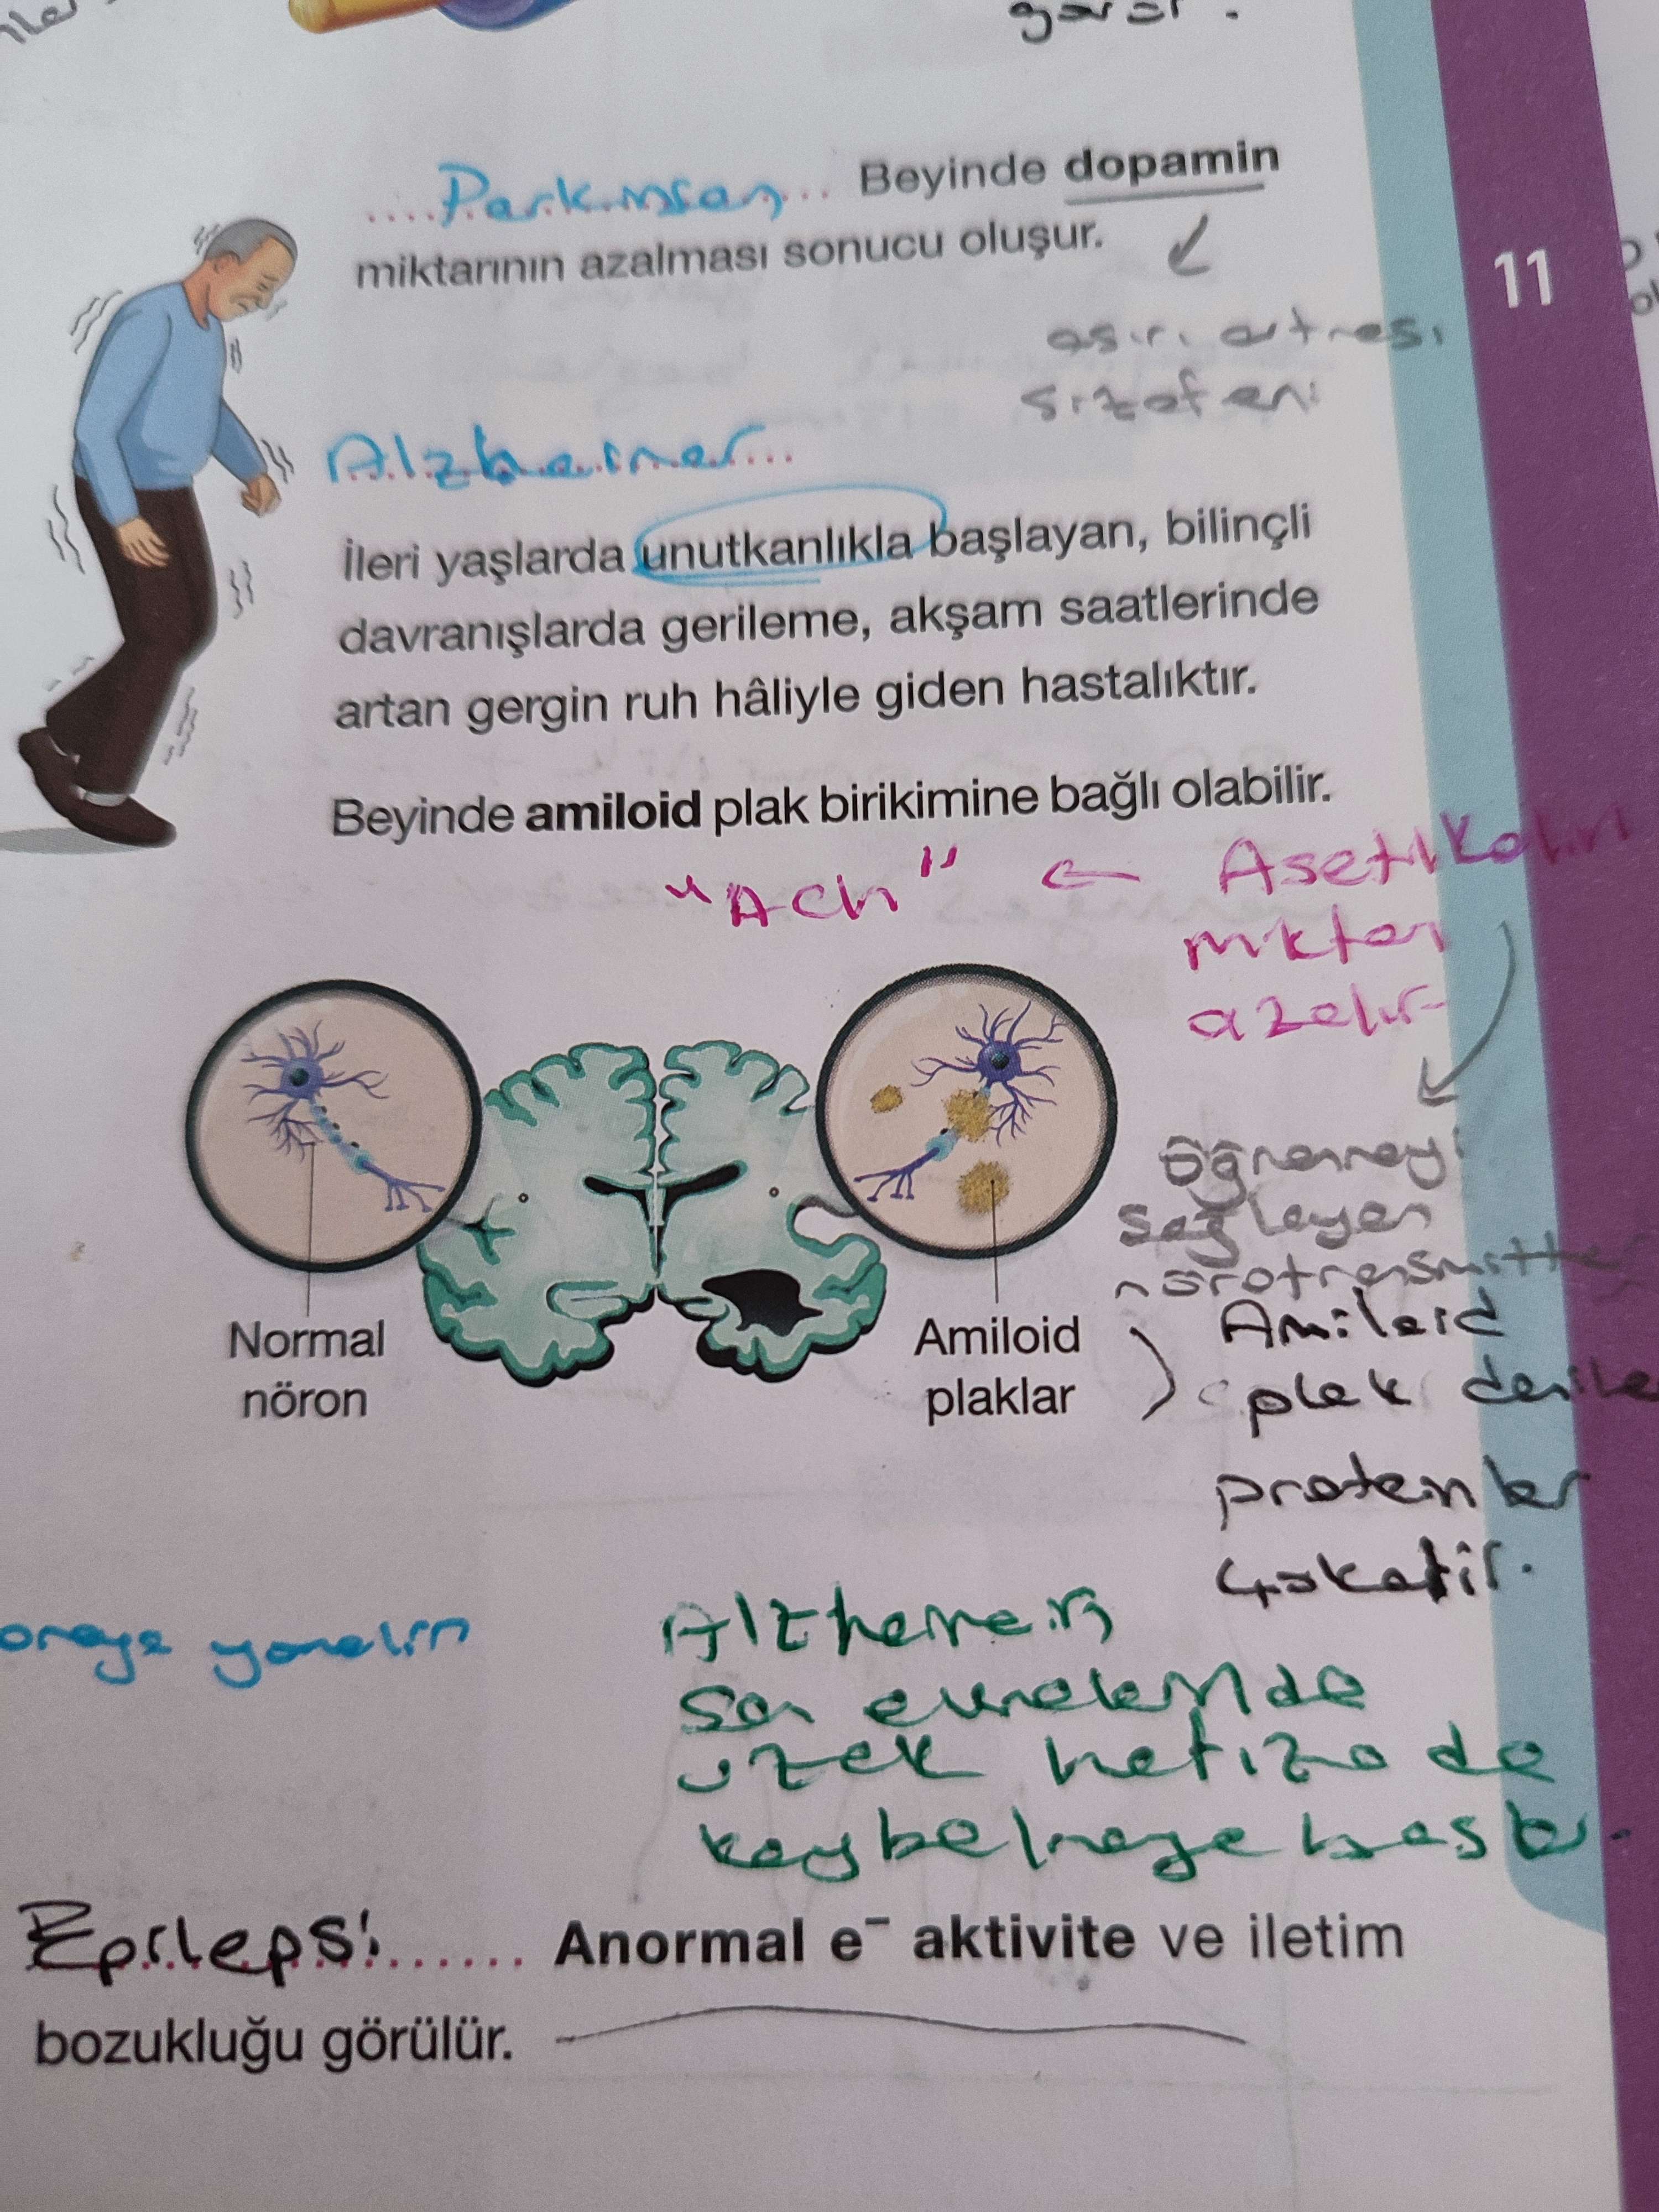 ....Parkinson... Beyinde dopamin
miktarının azalması sonucu oluşur.
11
aşırı artması
şizofreni
Alzheimer...
İleri yaşlarda unutkanlıkla başlayan, bilinçli
davranışlarda gerileme, akşam saatlerinde
artan gergin ruh hâliyle giden hastalıktır.
Beyinde amiloid plak birikimine bağlı olabilir.
"Ach" ← Asetilkolin
miktarı
azalır
öğrenmeyi
sağlayan
nörotransmitter
Normal
nöron
Amiloid
plaklar
Amiloid
plak
proteinler
çökelir.
yönelim
Alzheimerin
son evrelerinde
uzak hafıza da
kaybolmaya başlar.
Epilepsi...... Anormal e⁻ aktivite ve iletim
bozukluğu görülür.